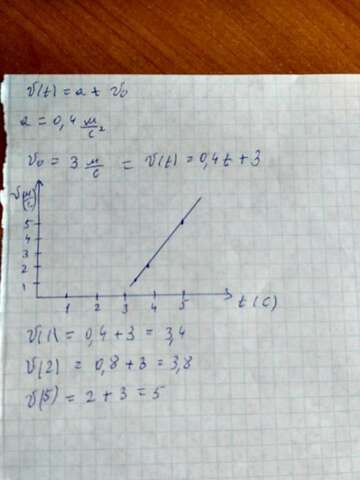 v(t) = a t v₀
a = 0,4 м/с²
v₀ = 3 м/с = v(t) = 0,4t + 3
v(м/с)
5
4
3
2
1
1 2 3 4 5 t(c)
v(1) = 0,4 + 3 = 3,4
v(2) = 0,8 + 3 = 3,8
v(5) = 2 + 3 = 5